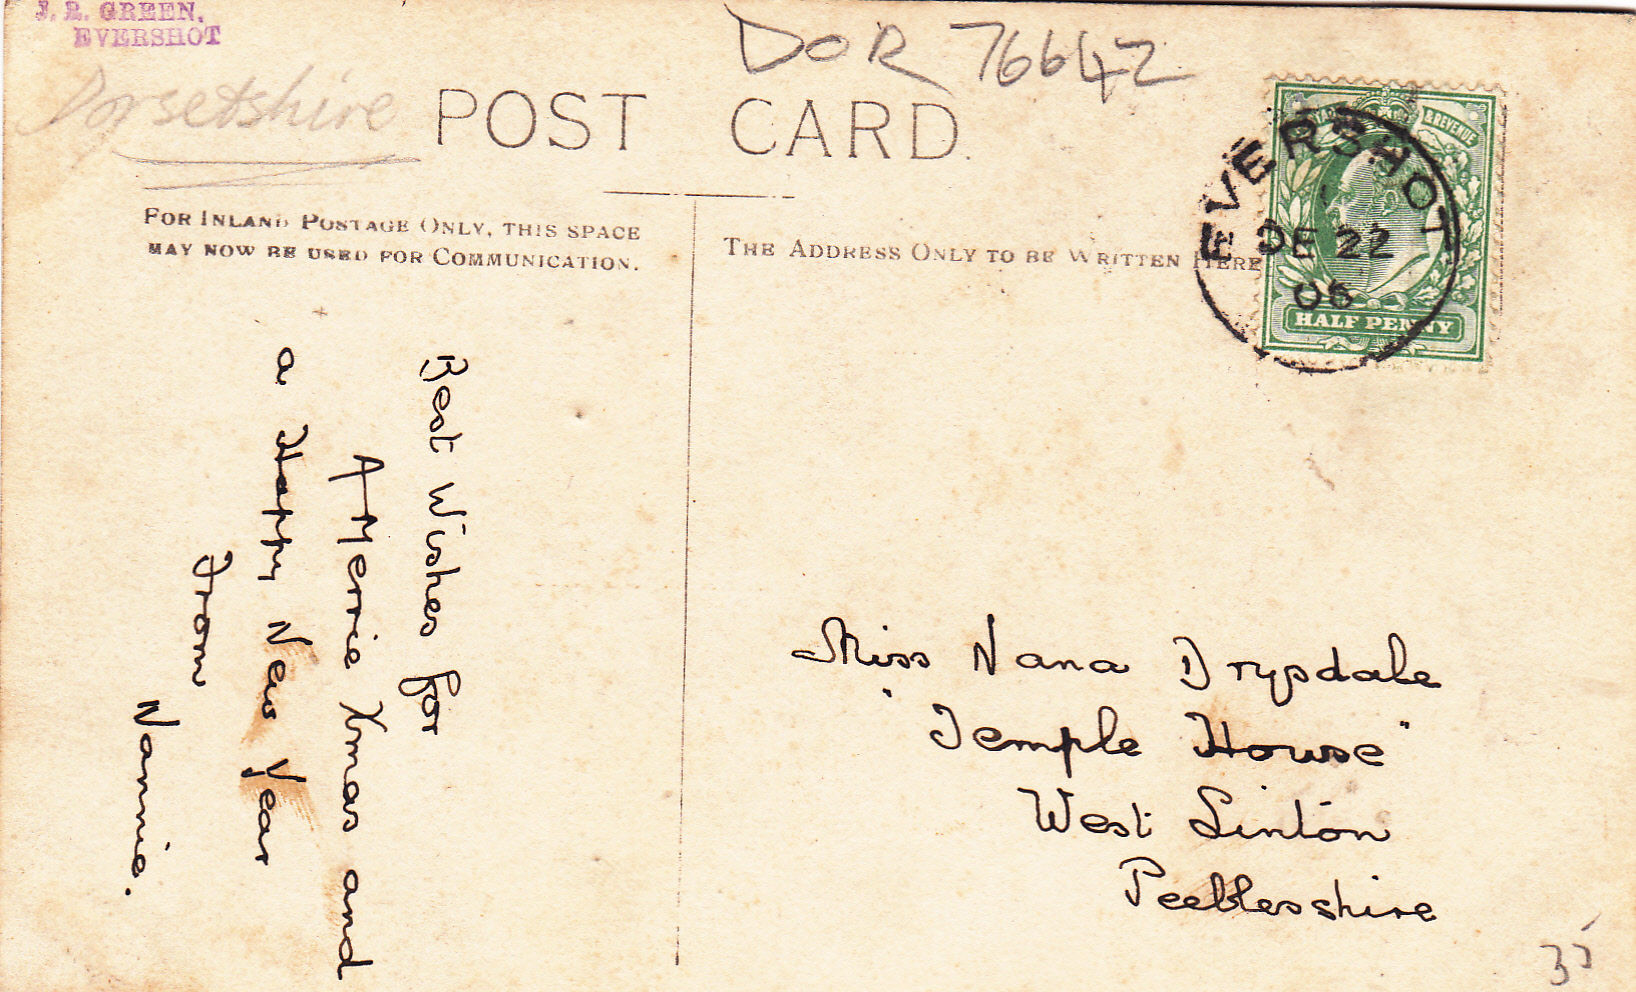 J. R. GREEN,
EVERSHOT
Dorsetshire
DOR 76642
POST CARD.
FOR INLAND POSTAGE ONLY, THIS SPACE
MAY NOW BE USED FOR COMMUNICATION.
THE ADDRESS ONLY TO BE WRITTEN HERE
& REVENUE
HALF PENNY
EVERSHOT
DE 22
06
Best Wishes for
A Merrie Xmas and
a Happy New Year
From
Nannie.
Miss Nana Drysdale
"Temple House"
West Linton
Peeblesshire